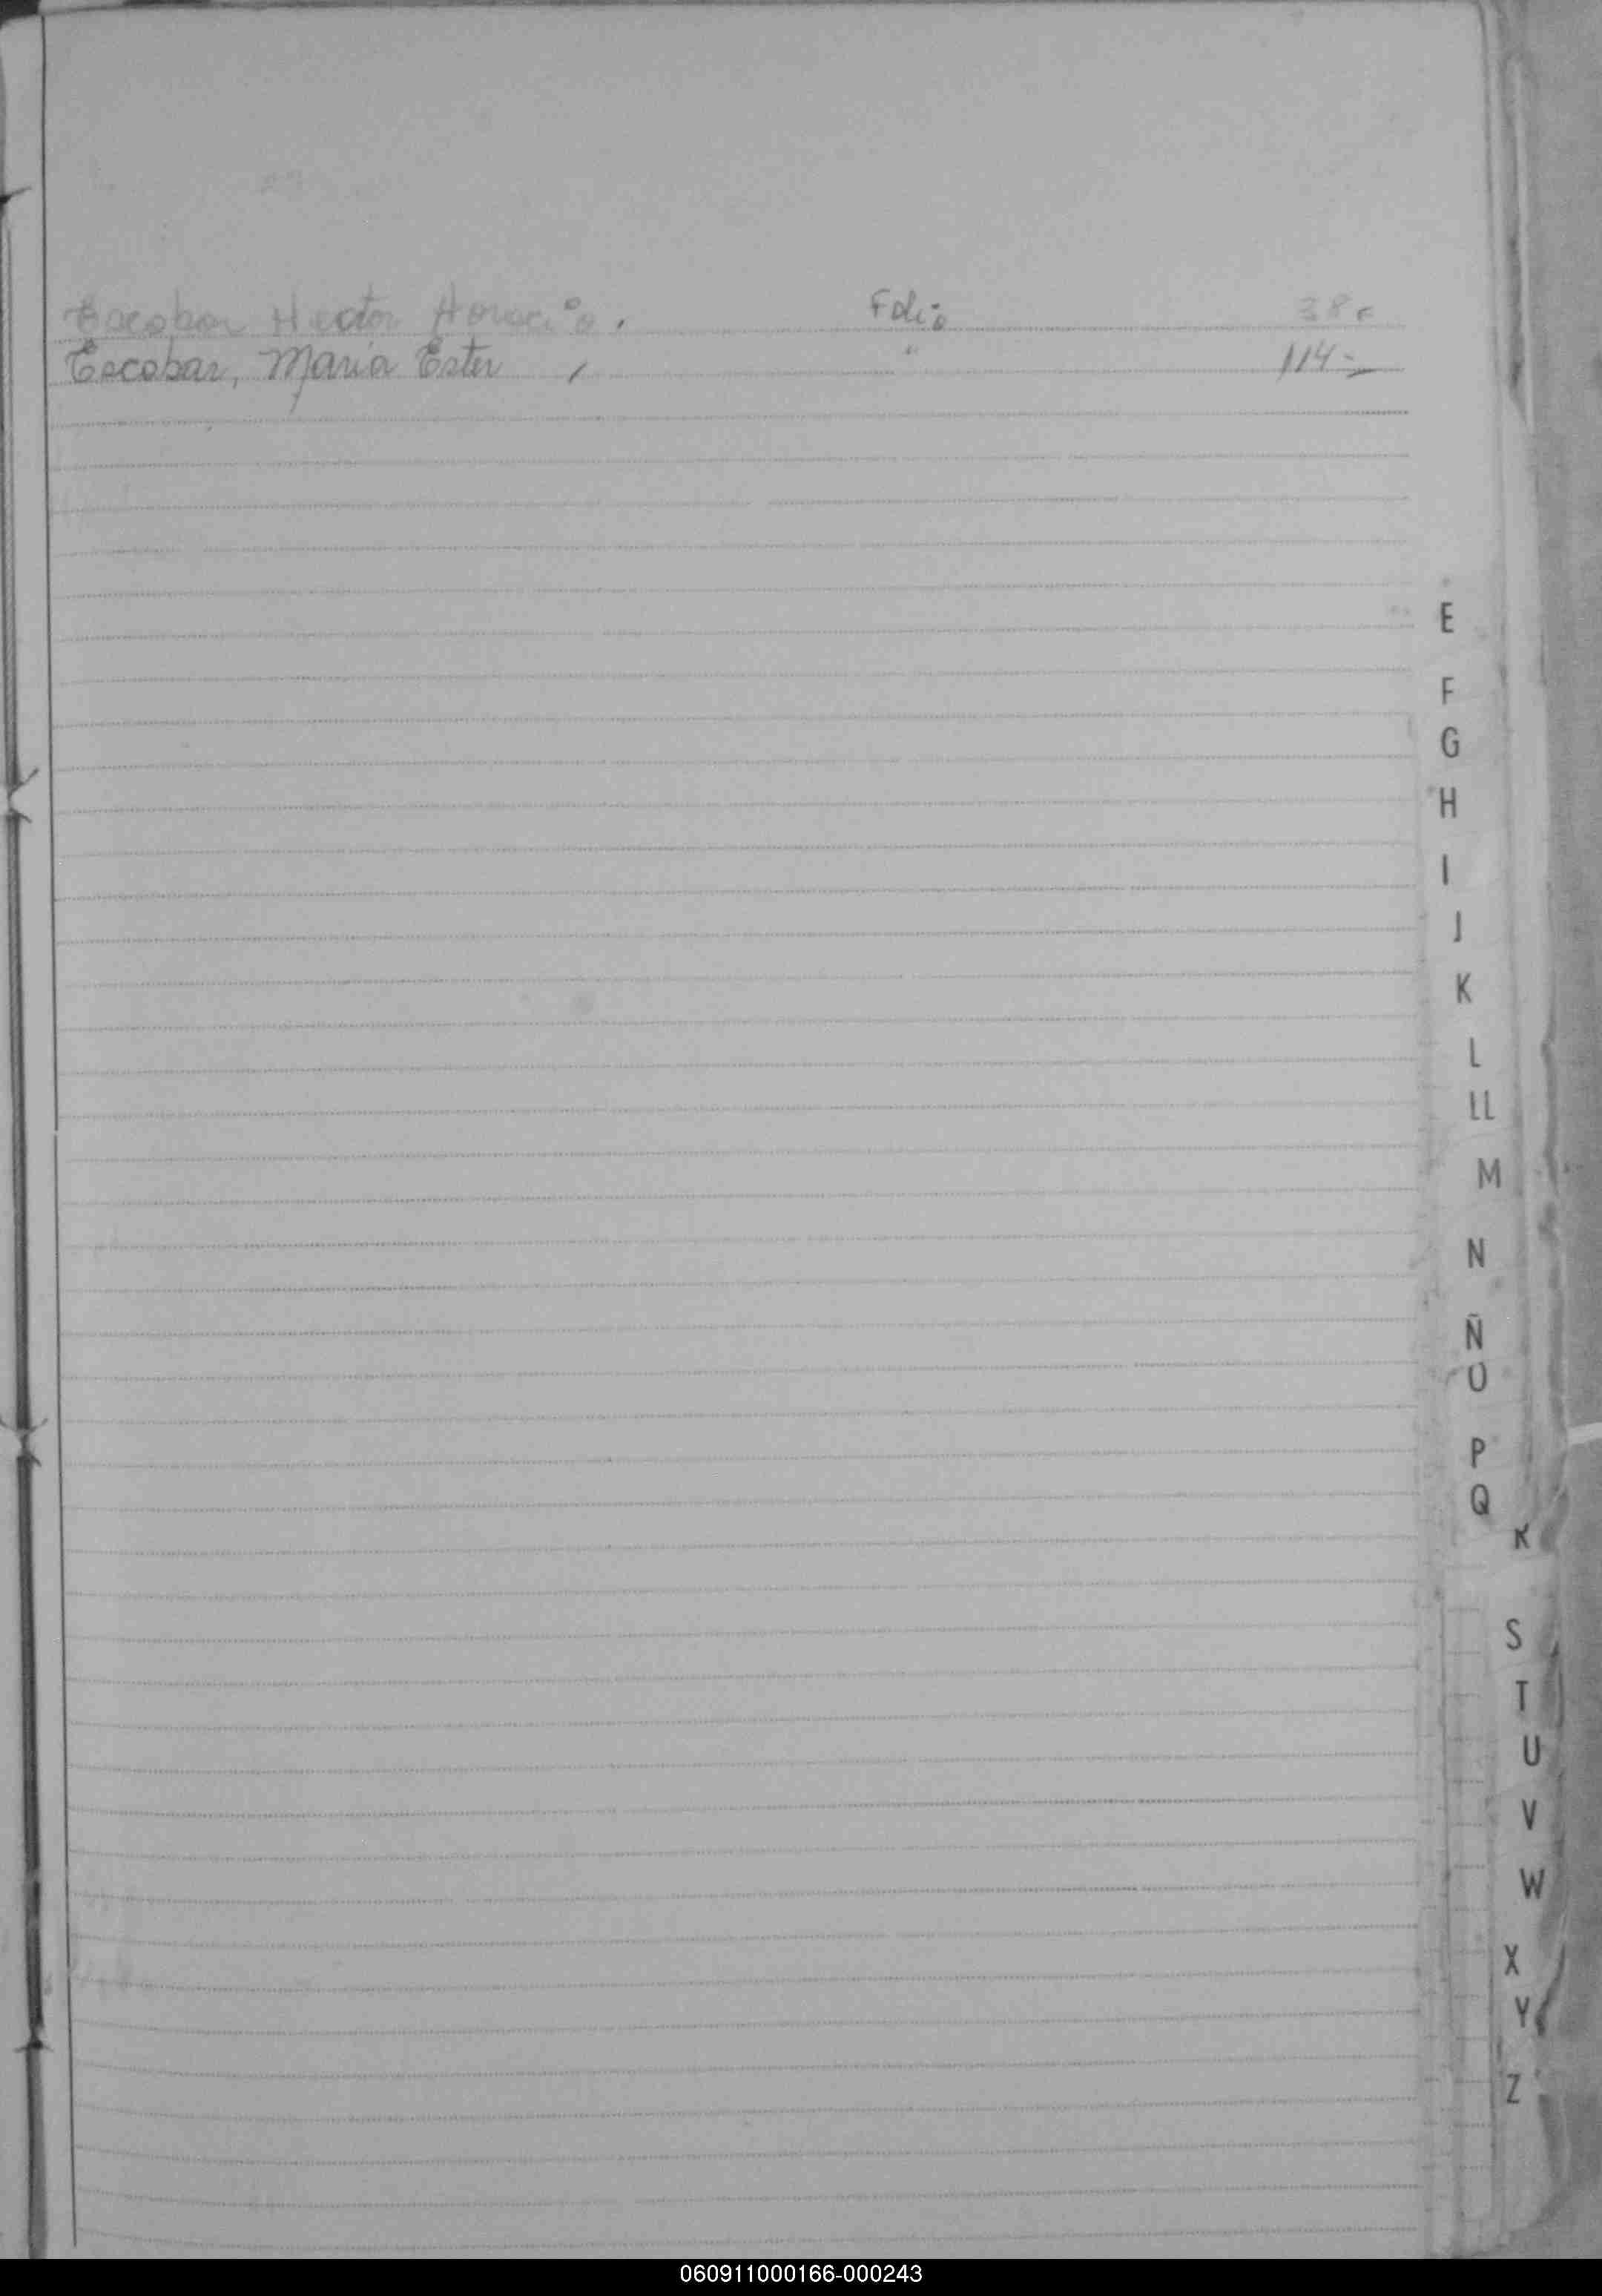 Escobar Hector Horacio. Folio 38
Escobar, Maria Ester " 114-
E
F
G
H
I
J
K
L
LL
M
N
Ñ
O
P
Q
R
S
T
U
V
W
X
Y
Z
060911000166-000243